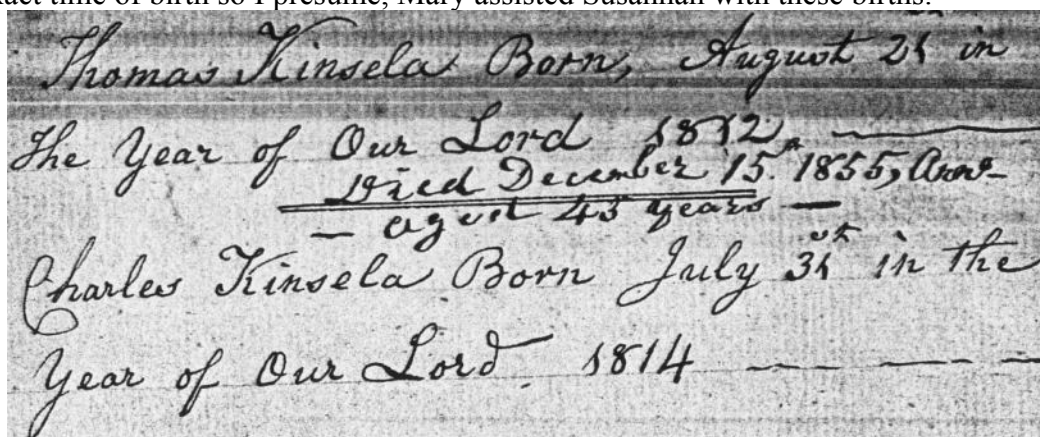 xact time of birth so I presume, Mary assisted Susannah with these births.
Thomas Kinsela Born, August 21 in
The Year of Our Lord 1812
Died December 15th 1855,
— aged 43 years —
Charles Kinsela Born July 31st in the
Year of Our Lord 1814 — — — —